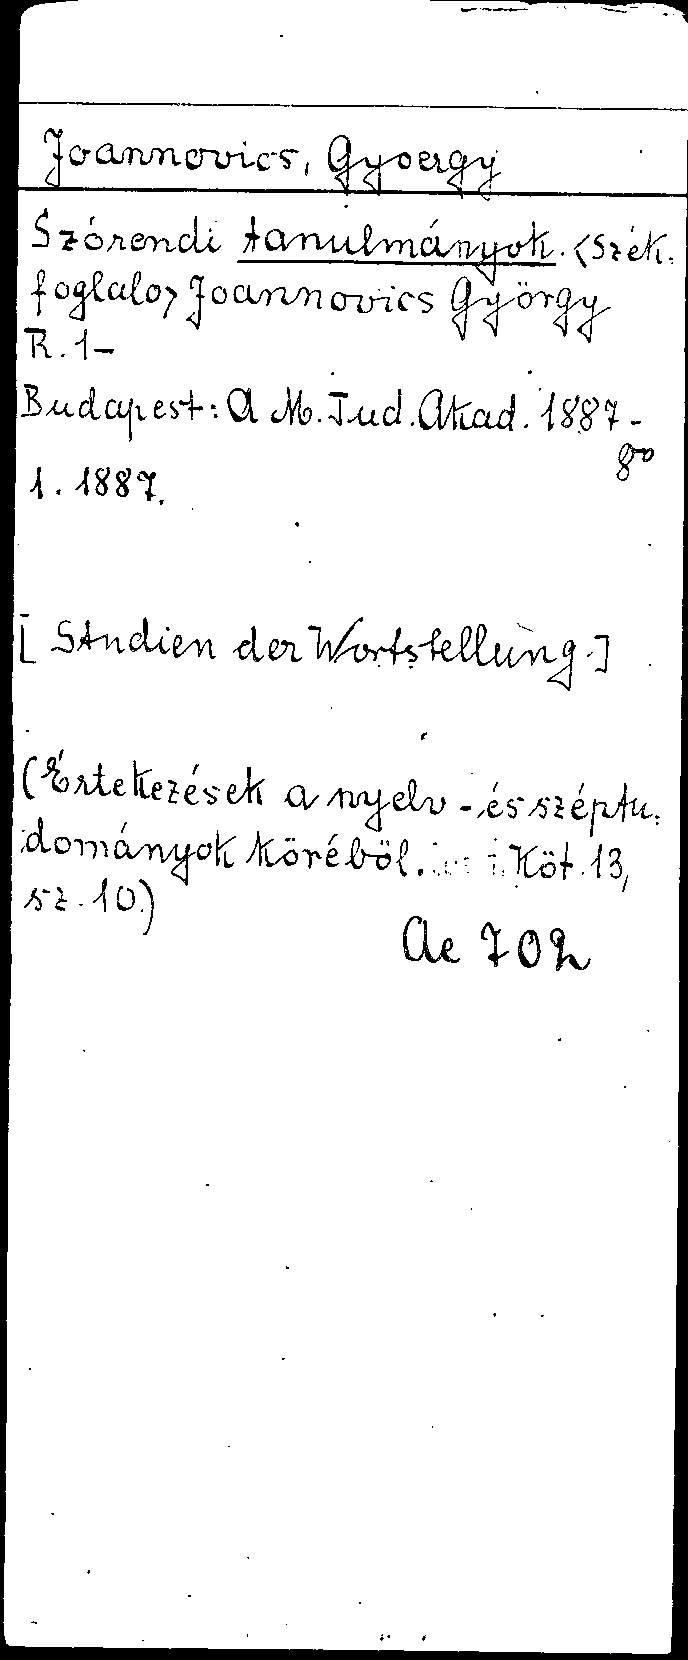 Joannovics, Gyoergy
Szórendi tanulmányok. <Szék.
foglalo> Joannovics György
R. 1-
Budapest: A M. Tud. Akad. 1887-
8°
1. 1887.
[Studien der Wortstellung.]
(Értekezések a nyelv - és széptu.
dományok köréböl. Köt. 13,
sz. 10.)
Ae 702